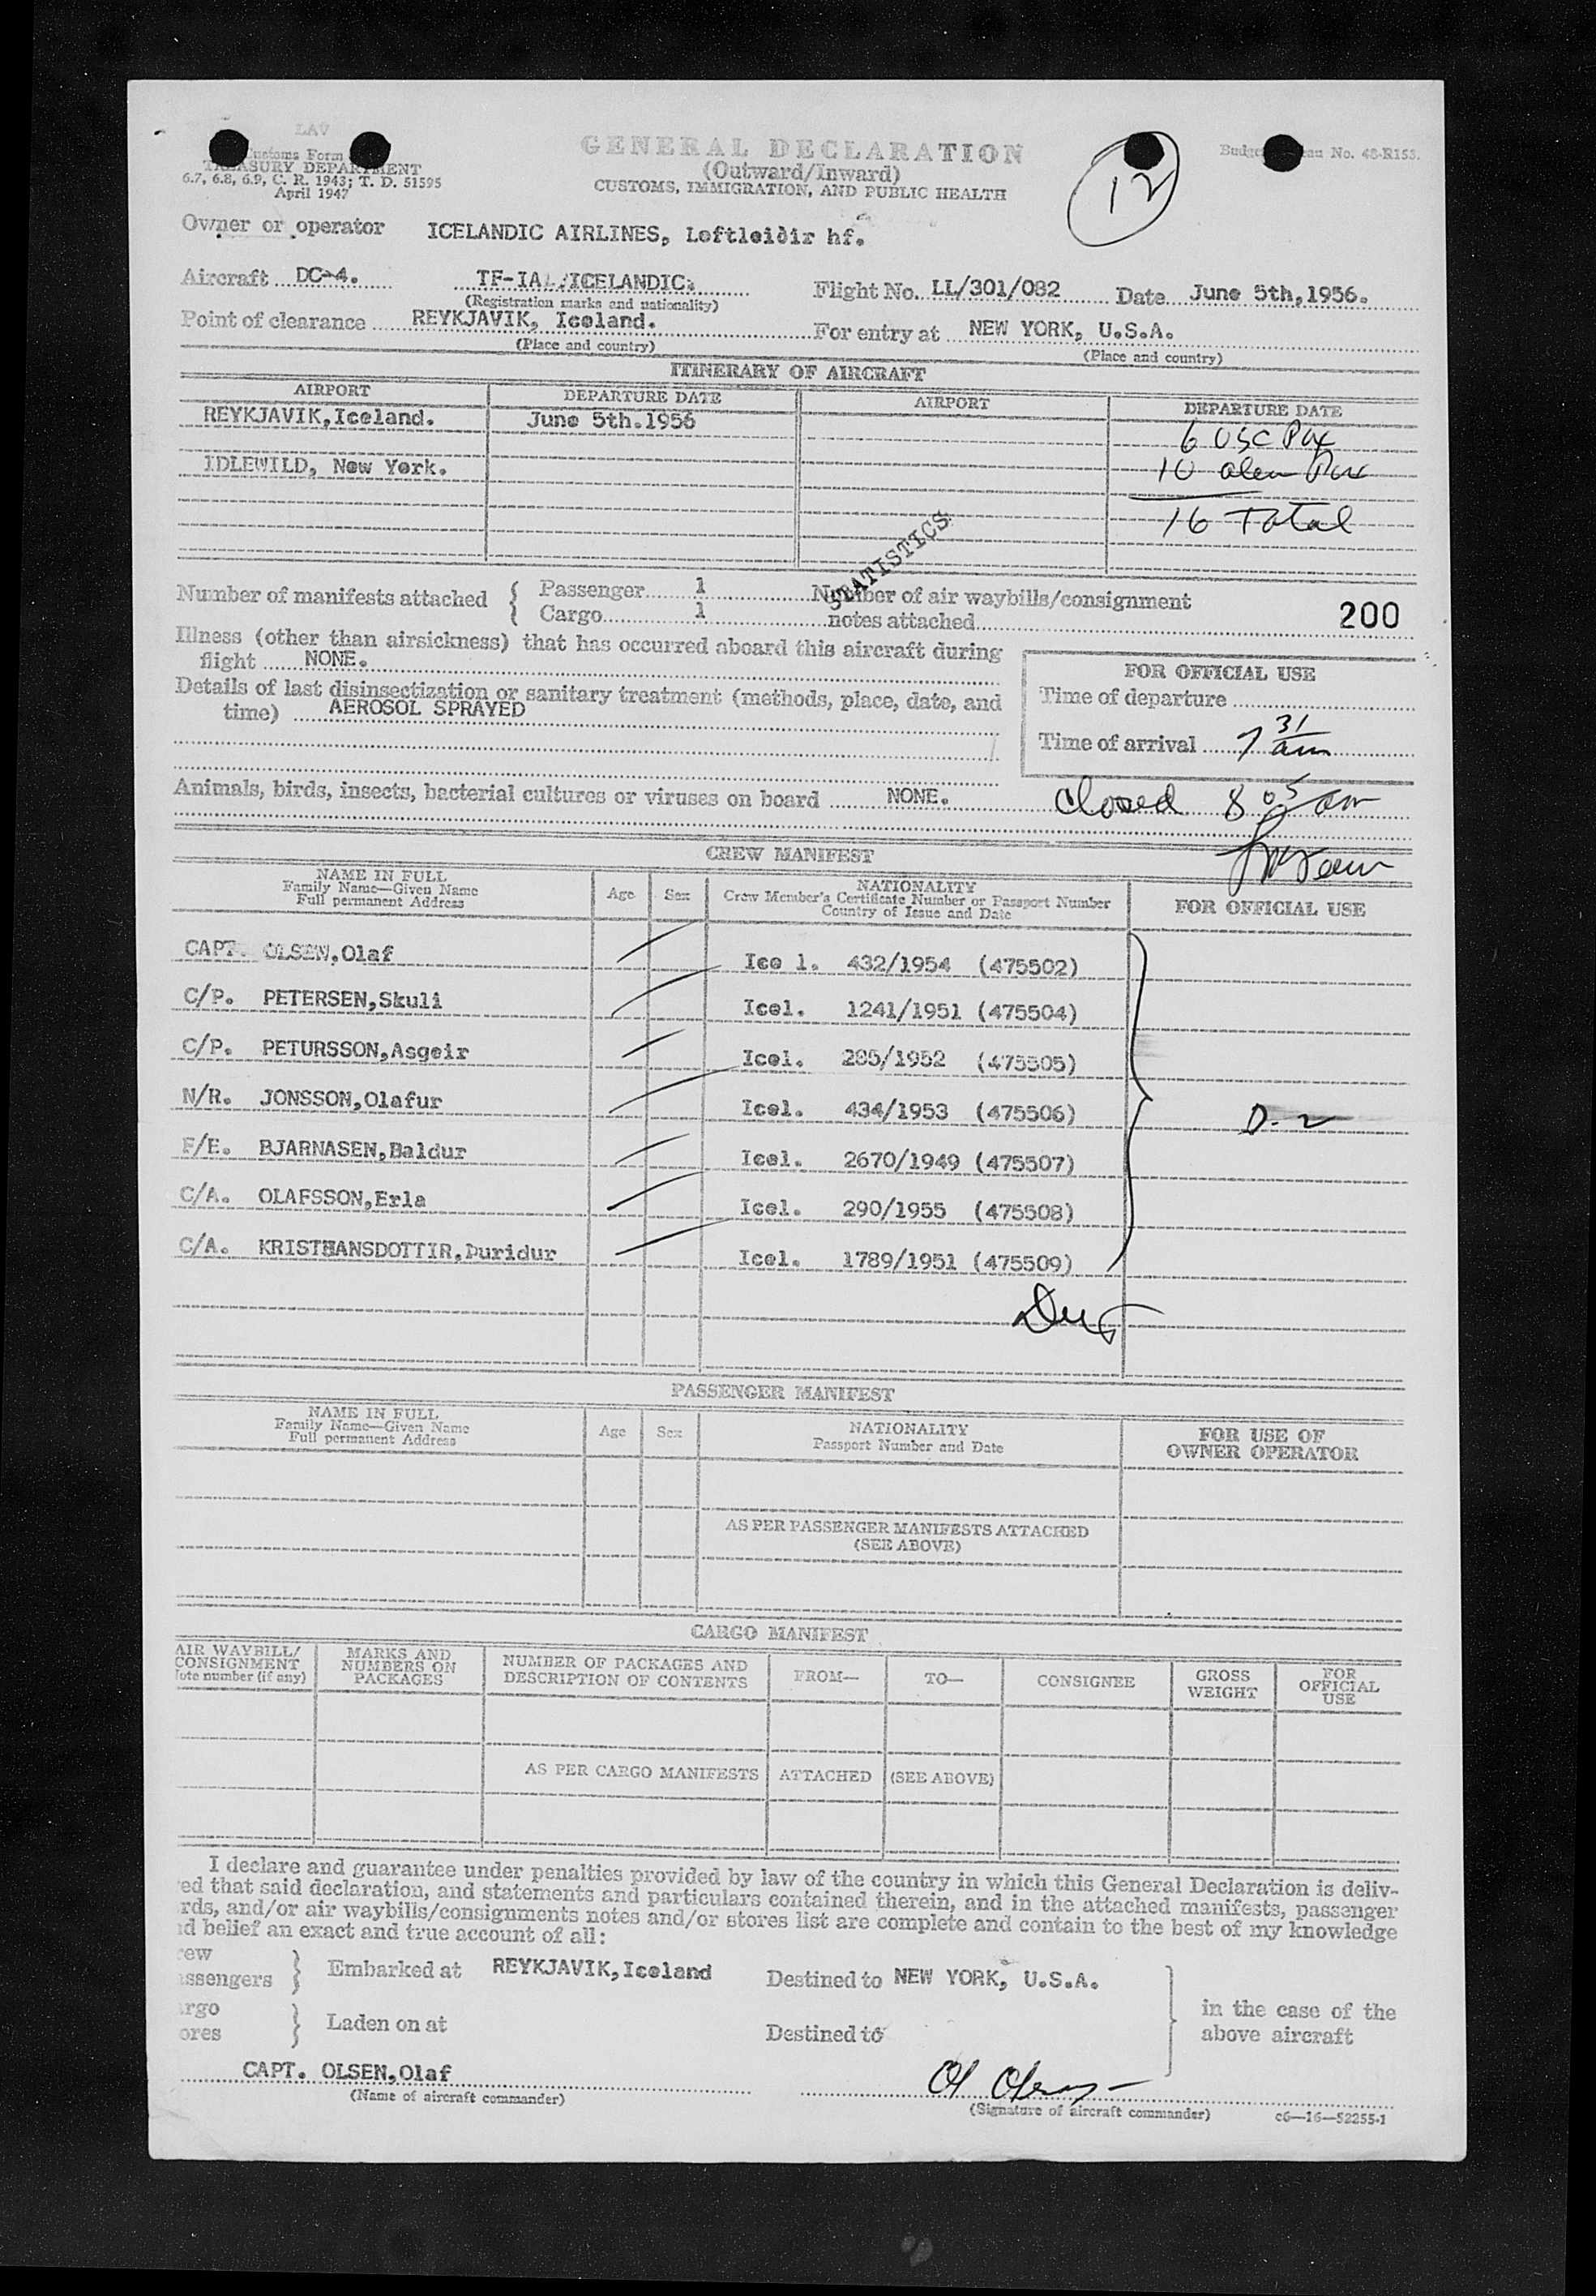 LAV
Customs Form
TREASURY DEPARTMENT
6.7, 6.8, 6.9, C. R. 1943; T. D. 51595
April 1947
GENERAL DECLARATION
(Outward/Inward)
CUSTOMS, IMMIGRATION, AND PUBLIC HEALTH
12
Budget Bureau No. 48-R153.
Owner or operator ICELANDIC AIRLINES, Loftleiðir hf.
Aircraft DC-4. TF-IAL/ICELANDIC. Flight No. LL/301/082 Date June 5th,1956.
(Registration marks and nationality)
Point of clearance REYKJAVIK, Iceland. For entry at NEW YORK, U.S.A.
(Place and country) (Place and country)
ITINERARY OF AIRCRAFT
AIRPORT DEPARTURE DATE AIRPORT DEPARTURE DATE
REYKJAVIK,Iceland. June 5th.1956
6 USC Pax
IDLEWILD, New York.
10 alien Pax
16 Total
STATISTICS
Number of manifests attached { Passenger 1 Number of air waybills/consignment
{ Cargo 1 notes attached 200
Illness (other than airsickness) that has occurred aboard this aircraft during
flight NONE.
Details of last disinsectization or sanitary treatment (methods, place, date, and
time) AEROSOL SPRAYED
FOR OFFICIAL USE
Time of departure
Time of arrival 7 31 am
Animals, birds, insects, bacterial cultures or viruses on board NONE.
Closed 8 05 am
CREW MANIFEST
NAME IN FULL
Family Name—Given Name
Full permanent Address
Age Sex
NATIONALITY
Crew Member's Certificate Number or Passport Number
Country of Issue and Date
FOR OFFICIAL USE
CAPT. OLSEN,Olaf Ice l. 432/1954 (475502)
C/P. PETERSEN,Skuli Icel. 1241/1951 (475504)
C/P. PETURSSON,Asgeir Icel. 285/1952 (475505)
N/R. JONSSON,Olafur Icel. 434/1953 (475506)
D-2
F/E. BJARNASEN,Baldur Icel. 2670/1949 (475507)
C/A. OLAFSSON,Erla Icel. 290/1955 (475508)
C/A. KRISTJANSDOTTIR,Þuridur Icel. 1789/1951 (475509)
PASSENGER MANIFEST
NAME IN FULL
Family Name—Given Name
Full permanent Address
Age Sex
NATIONALITY
Passport Number and Date
FOR USE OF
OWNER OPERATOR
AS PER PASSENGER MANIFESTS ATTACHED
(SEE ABOVE)
CARGO MANIFEST
AIR WAYBILL/
CONSIGNMENT
Note number (if any)
MARKS AND
NUMBERS ON
PACKAGES
NUMBER OF PACKAGES AND
DESCRIPTION OF CONTENTS
FROM— TO— CONSIGNEE
GROSS
WEIGHT
FOR
OFFICIAL
USE
AS PER CARGO MANIFESTS ATTACHED (SEE ABOVE)
I declare and guarantee under penalties provided by law of the country in which this General Declaration is deliv-
ed that said declaration, and statements and particulars contained therein, and in the attached manifests, passenger
rds, and/or air waybills/consignments notes and/or stores list are complete and contain to the best of my knowledge
d belief an exact and true account of all:
rew
assengers } Embarked at REYKJAVIK,Iceland Destined to NEW YORK, U.S.A.
argo
ores } Laden on at Destined to
in the case of the
above aircraft
CAPT. OLSEN,Olaf
(Name of aircraft commander)
Ol Olsen
(Signature of aircraft commander) c6—16—52255-1